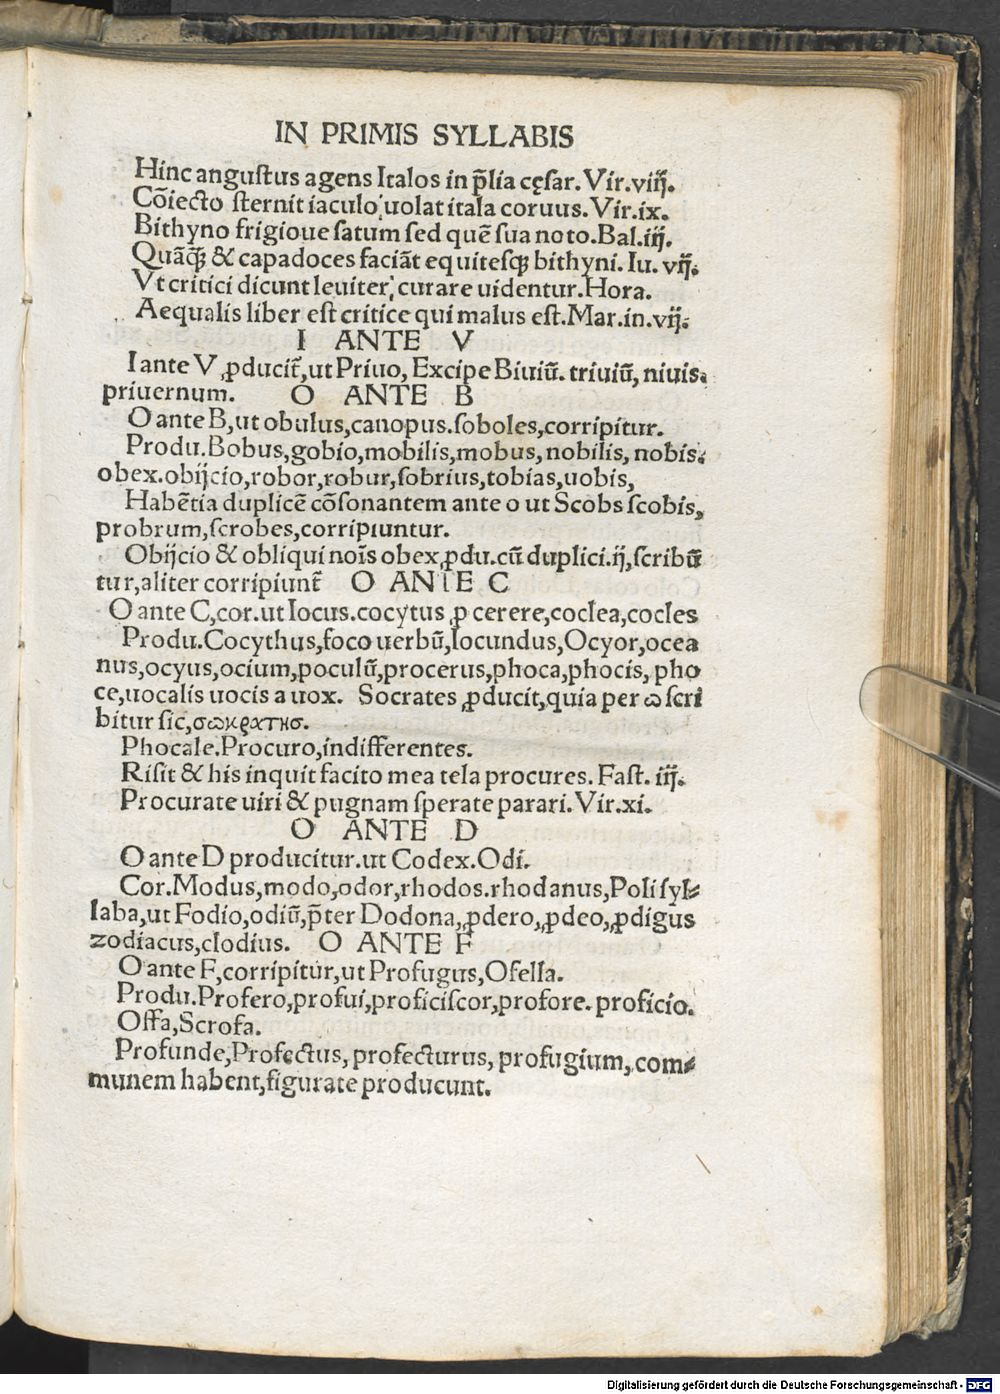 IN PRIMIS SYLLABIS
Hinc angustus agens Italos in p̃lia cęsar. Vir. viij.
Cõiecto sternit iaculo, uolat itala coruus. Vir. ix.
Bithyno frigioue satum sed quẽ sua noto. Bal. iij.
Quãq; & capadoces faciãt equitesq; bithyni. Iu. vij.
Vt critici dicunt leuiter, curare uidentur. Hora.
Aequalis liber est critice qui malus est. Mar. in. vij.
I ANTE V
I ante V ꝓducit̃, ut Priuo, Excipe Biuiũ. triuiũ, niuis.
priuernum. O ANTE B
O ante B, ut obulus, canopus. soboles, corripitur.
Produ. Bobus, gobio, mobilis, mobus, nobilis, nobis.
obex. obijcio, robor, robur, sobrius, tobias, uobis,
Habẽtia duplicẽ cõsonantem ante o ut Scobs scobis,
probrum, scrobes, corripiuntur.
Obijcio & obliqui noĩs obex, ꝓdu. cũ duplici. ij, scribũ
tur, aliter corripiunt̃ O ANTE C
O ante C, cor. ut Iocus. cocytus ꝓ cerere, coclea, cocles
Produ. Cocythus, foco uerbũ, Iocundus, Ocyor, ocea
nus, ocyus, ocium, poculũ, procerus, phoca, phocis, pho
ce, uocalis uocis a uox. Socrates ꝓducit, quia per ω scri
bitur sic, σωκρατησ.
Phocale. Procuro, indifferentes.
Risit & his inquit facito mea tela procures. Fast. iij.
Procurate uiri & pugnam sperate parari. Vir. xi.
O ANTE D
O ante D producitur. ut Codex. Odi.
Cor. Modus, modo, odor, rhodos. rhodanus, Polisyl-
laba, ut Fodio, odiũ, p̃ter Dodona, ꝓdero, ꝓdeo, ꝓdigus
zodiacus, clodius. O ANTE F
O ante F, corripitur, ut Profugus, Ofella.
Produ. Profero, profui, proficiscor, profore. proficio.
Offa, Scrofa.
Profunde, Profectus, profecturus, profugium, com-
munem habent, figurate producunt.
Digitalisierung gefördert durch die Deutsche Forschungsgemeinschaft - DFG